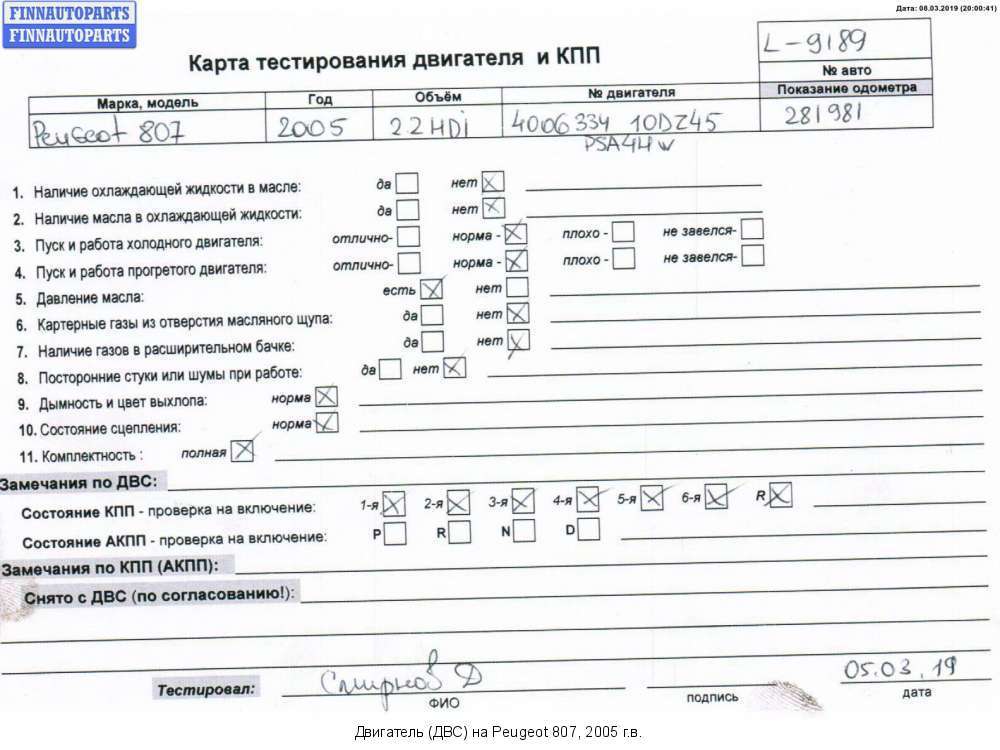 FINNAUTOPARTS
FINNAUTOPARTS
Дата: 08.03.2019 (20:00:41)
L-9189
Карта тестирования двигателя и КПП
№ авто
Марка, модель Год Объём № двигателя Показание одометра
Peugeot 807 2005 2.2 HDi 4006334 10DZ45 281981
PSA4HW
1. Наличие охлаждающей жидкости в масле: да нет
2. Наличие масла в охлаждающей жидкости: да нет
3. Пуск и работа холодного двигателя: отлично- норма - плохо - не завелся-
4. Пуск и работа прогретого двигателя: отлично- норма - плохо - не завелся-
5. Давление масла: есть нет
6. Картерные газы из отверстия масляного щупа: да нет
7. Наличие газов в расширительном бачке: да нет
8. Посторонние стуки или шумы при работе: да нет
9. Дымность и цвет выхлопа: норма
10. Состояние сцепления: норма
11. Комплектность : полная
Замечания по ДВС:
Состояние КПП - проверка на включение: 1-я 2-я 3-я 4-я 5-я 6-я R
Состояние АКПП - проверка на включение: P R N D
Замечания по КПП (АКПП):
Снято с ДВС (по согласованию!):
Тестировал: Смирнов Д 05.03.19
ФИО подпись дата
Двигатель (ДВС) на Peugeot 807, 2005 г.в.